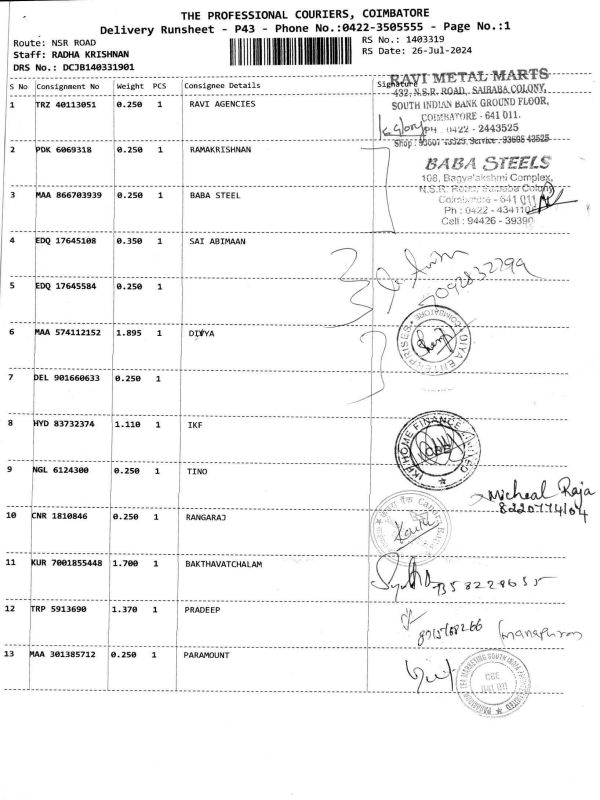 THE PROFESSIONAL COURIERS, COIMBATORE
Delivery Runsheet - P43 - Phone No.:0422-3505555 - Page No.:1
Route: NSR ROAD
Staff: RADHA KRISHNAN
DRS No.: DCJB140331901
RS No.: 1403319
RS Date: 26-Jul-2024
S No Consignment No Weight PCS Consignee Details Signature
RAVI METAL MARTS
432, N.S.R. ROAD, SAIBABA COLONY,
SOUTH INDIAN BANK GROUND FLOOR,
COIMBATORE - 641 011.
PH : 0422 - 2443525
Shop : 93607 43525, Service : 93608 43525
1 TRZ 40113051 0.250 1 RAVI AGENCIES
2 PDK 6069318 0.250 1 RAMAKRISHNAN
BABA STEELS
108, Bagyalakshmi Complex,
N.S.R. Road, Saibaba Colony
Coimbatore - 641 011
Ph : 0422 - 434110
Cell : 94426 - 39390
3 MAA 866703939 0.250 1 BABA STEEL
4 EDQ 17645108 0.350 1 SAI ABIMAAN
5 EDQ 17645584 0.250 1
9092832299
6 MAA 574112152 1.895 1 DIVYA
DIVYA ENTERPRISES
COIMBATORE
7 DEL 901660633 0.250 1
8 HYD 83732374 1.110 1 IKF
IKF HOME FINANCE LIMITED
CBE
9 NGL 6124300 0.250 1 TINO
Micheal Raja
8220774104
10 CNR 1810846 0.250 1 RANGARAJ
Canara Bank
11 KUR 7001855448 1.700 1 BAKTHAVATCHALAM
12 TRP 5913690 1.370 1 PRADEEP
13 MAA 301385712 0.250 1 PARAMOUNT
CBE
641 011